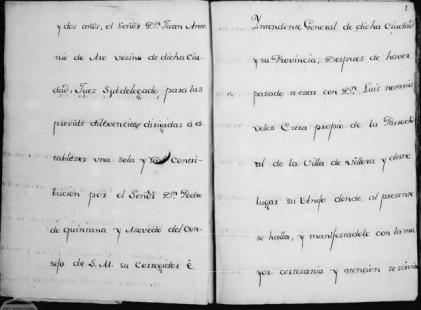 y dos años, el Señor Dn. Juan Anto
nio de Aro vezino de dicha Ciu
dad, Juez Subdelegado, para las
previas diligencias dirigidas á es
tablezer una sola y Contri
bución por el Señor Dn. Pedro
de quintana y Azevedo del Con
sejo de S. M. su Corregidor é
Yntendente General de dicha Ciudad,
y su Provincia, Despues de haver
pasado a estar con Dn. Luis
velez Cura propio de la Parroch
al de la Villa de y deste
lugar su Anejo donde al presente
se halla, y manifestadole con la ma
yor cortesania y atencion se sirvie